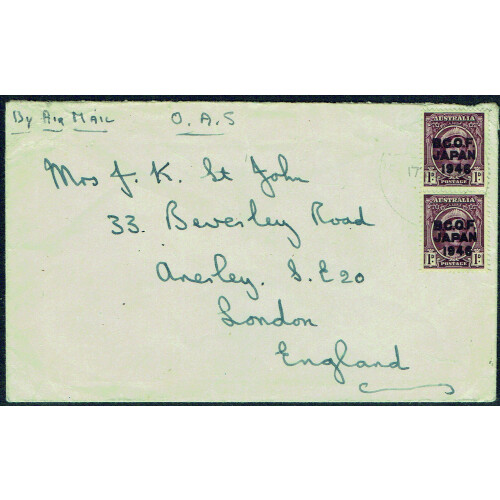 By Air Mail O.A.S
Mrs J. K. St John
33. Beverley Road
Anerley. S.E 20
London
England
AUSTRALIA
B.C.O.F.
JAPAN
1946
1D 1D
POSTAGE
AUSTRALIA
B.C.O.F.
JAPAN
1946
1D 1D
POSTAGE
17